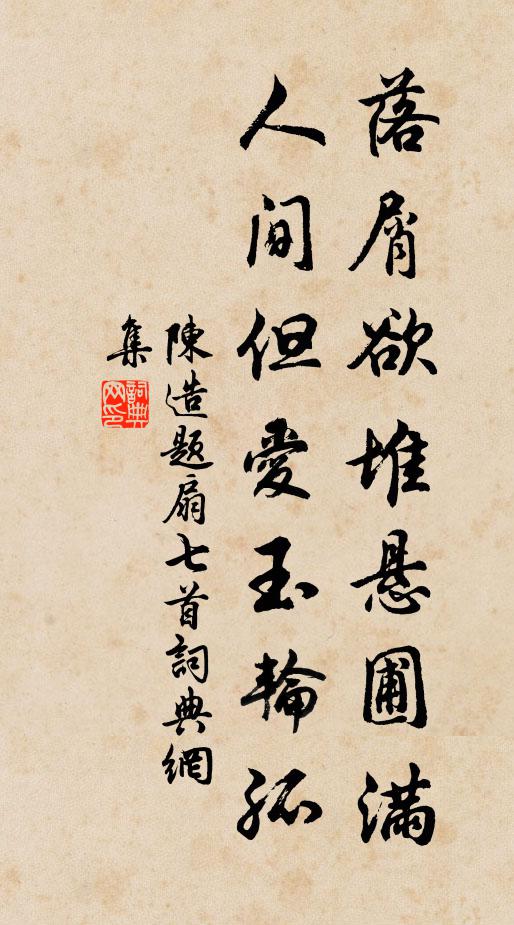 落屑欲堆悬圃滿
人间但愛玉輪孤
陳造題扇七首詞典網
集
詞典
网印